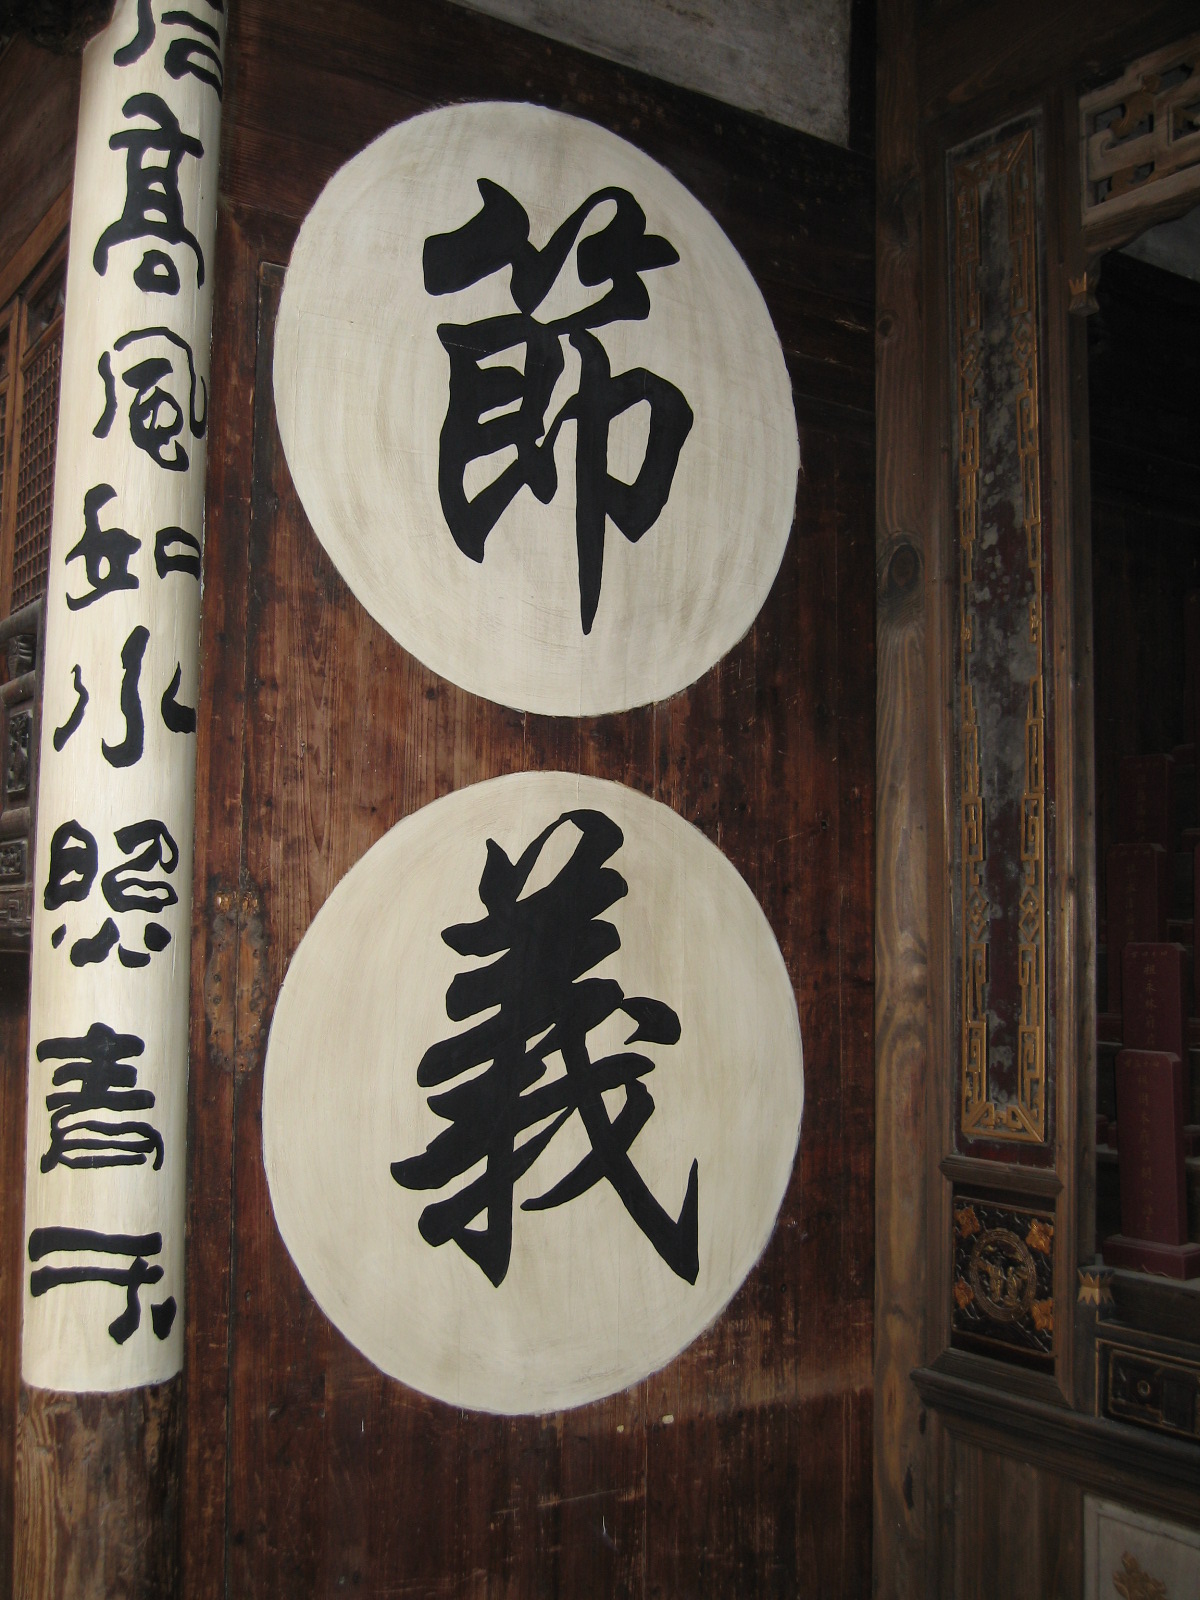 節
義
高風如水照青云